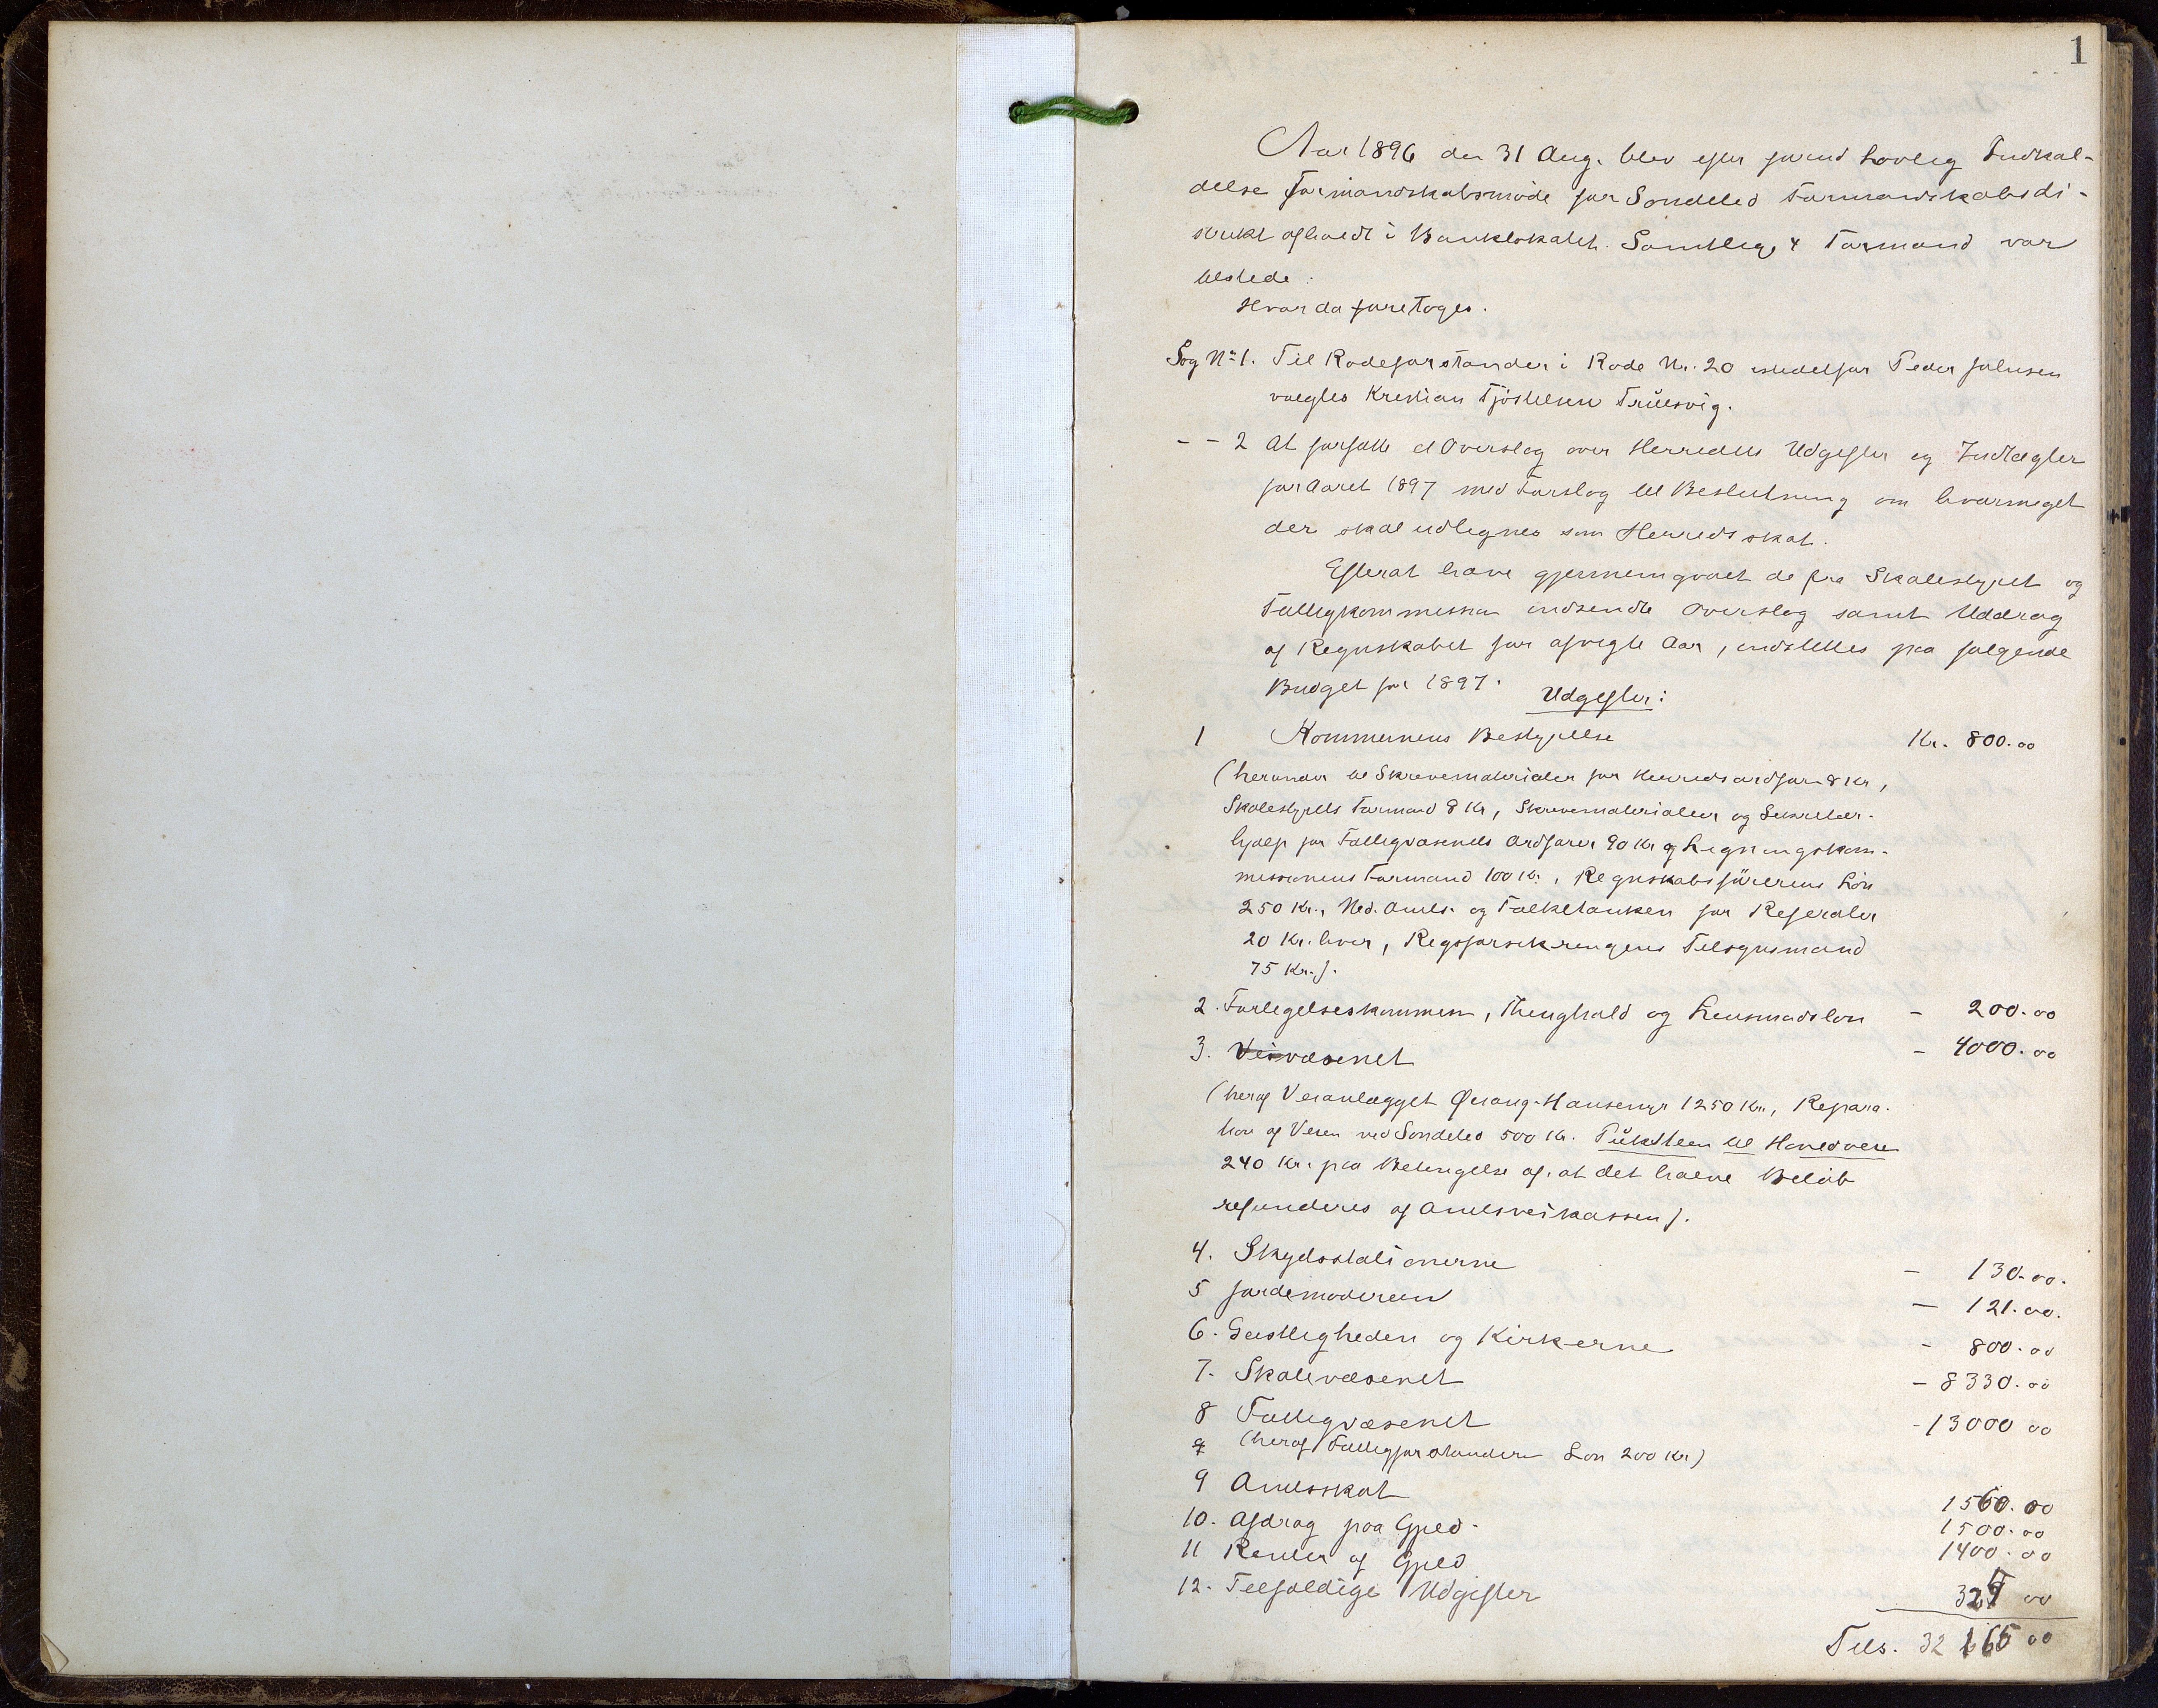 1
Aar 1896 den 31 Aug. blev efter forud lovlig Indkal-
delse Formandskabsmöde for Söndeled Formandskabsdi-
strikt afholdt i Banklokalet. Samtlige 4 Formænd var
tilstede:
Hvor da foretoges.
Sag No 1. Til Rodeforstander i Rode Nr. 20 istedetfor Peder Johnsen
valgtes Kristian Tjöstelsen Trülsvig.
- - 2 At forfatte et Overslag over Herredets Udgifter og Indtægter
for Aaret 1897 med Forslag til Beslutning om hvormeget
der skal udlignes som Herredsskat.
Efterat have gjennemgaaet de fra Skolestyret og
Fattigkommission indsendte Overslag samt Uddrag
af Regnskabet for afvigte Aar, indstilles paa følgende
Budget for 1897.
Udgifter:
1 Kommunens Bestyrelse Kr. 800.00
(herunder til Skrivematerialer for Herredsordfører 8 Kr,
Skolestyrets Formand 8 Kr, Skrivematerialier og Sekretær-
hjælp for Fattigvæsenets Ordfører 90 Kr og Ligningskom-
missionens Formand 100 Kr., Regnskabsförerens Lön
250 Kr., Ned. Amts. og Folketanken for Referater
20 Kr. hver, Rigsforsikringens Tilsynsmand
75 Kr.).
2. Forligelseskommen, Thinghold og Lensmadslön - 200.00
3. Veivæsenet - 4000.00
(heraf Veianlægget - Hansemyr 1250 Kr., Repara-
tion af Veien ved Söndeled 500 Kr. Pükstleen til Hovedveie
240 Kr. paa Betingelse af, at det halve Belöb
refunderes af Amtsveikassen).
4. Skydsstationerne - 130.00.
5 Jordemoderen - 121.00.
6. Geistligheden og Kirkerne - 800.00
7. Skolevæsenet - 8330.00
8 Fattigvæsenet - 13000 00
(heraf Fattigforstanderen Lön 200 Kr)
9 Amtsskat 1560.00
10. Afdrag paa Gjeld. 1500.00
11 Renter af Gjeld 1400.00
12. Tilfældige Udgifter 00
Tils. 32 165 00